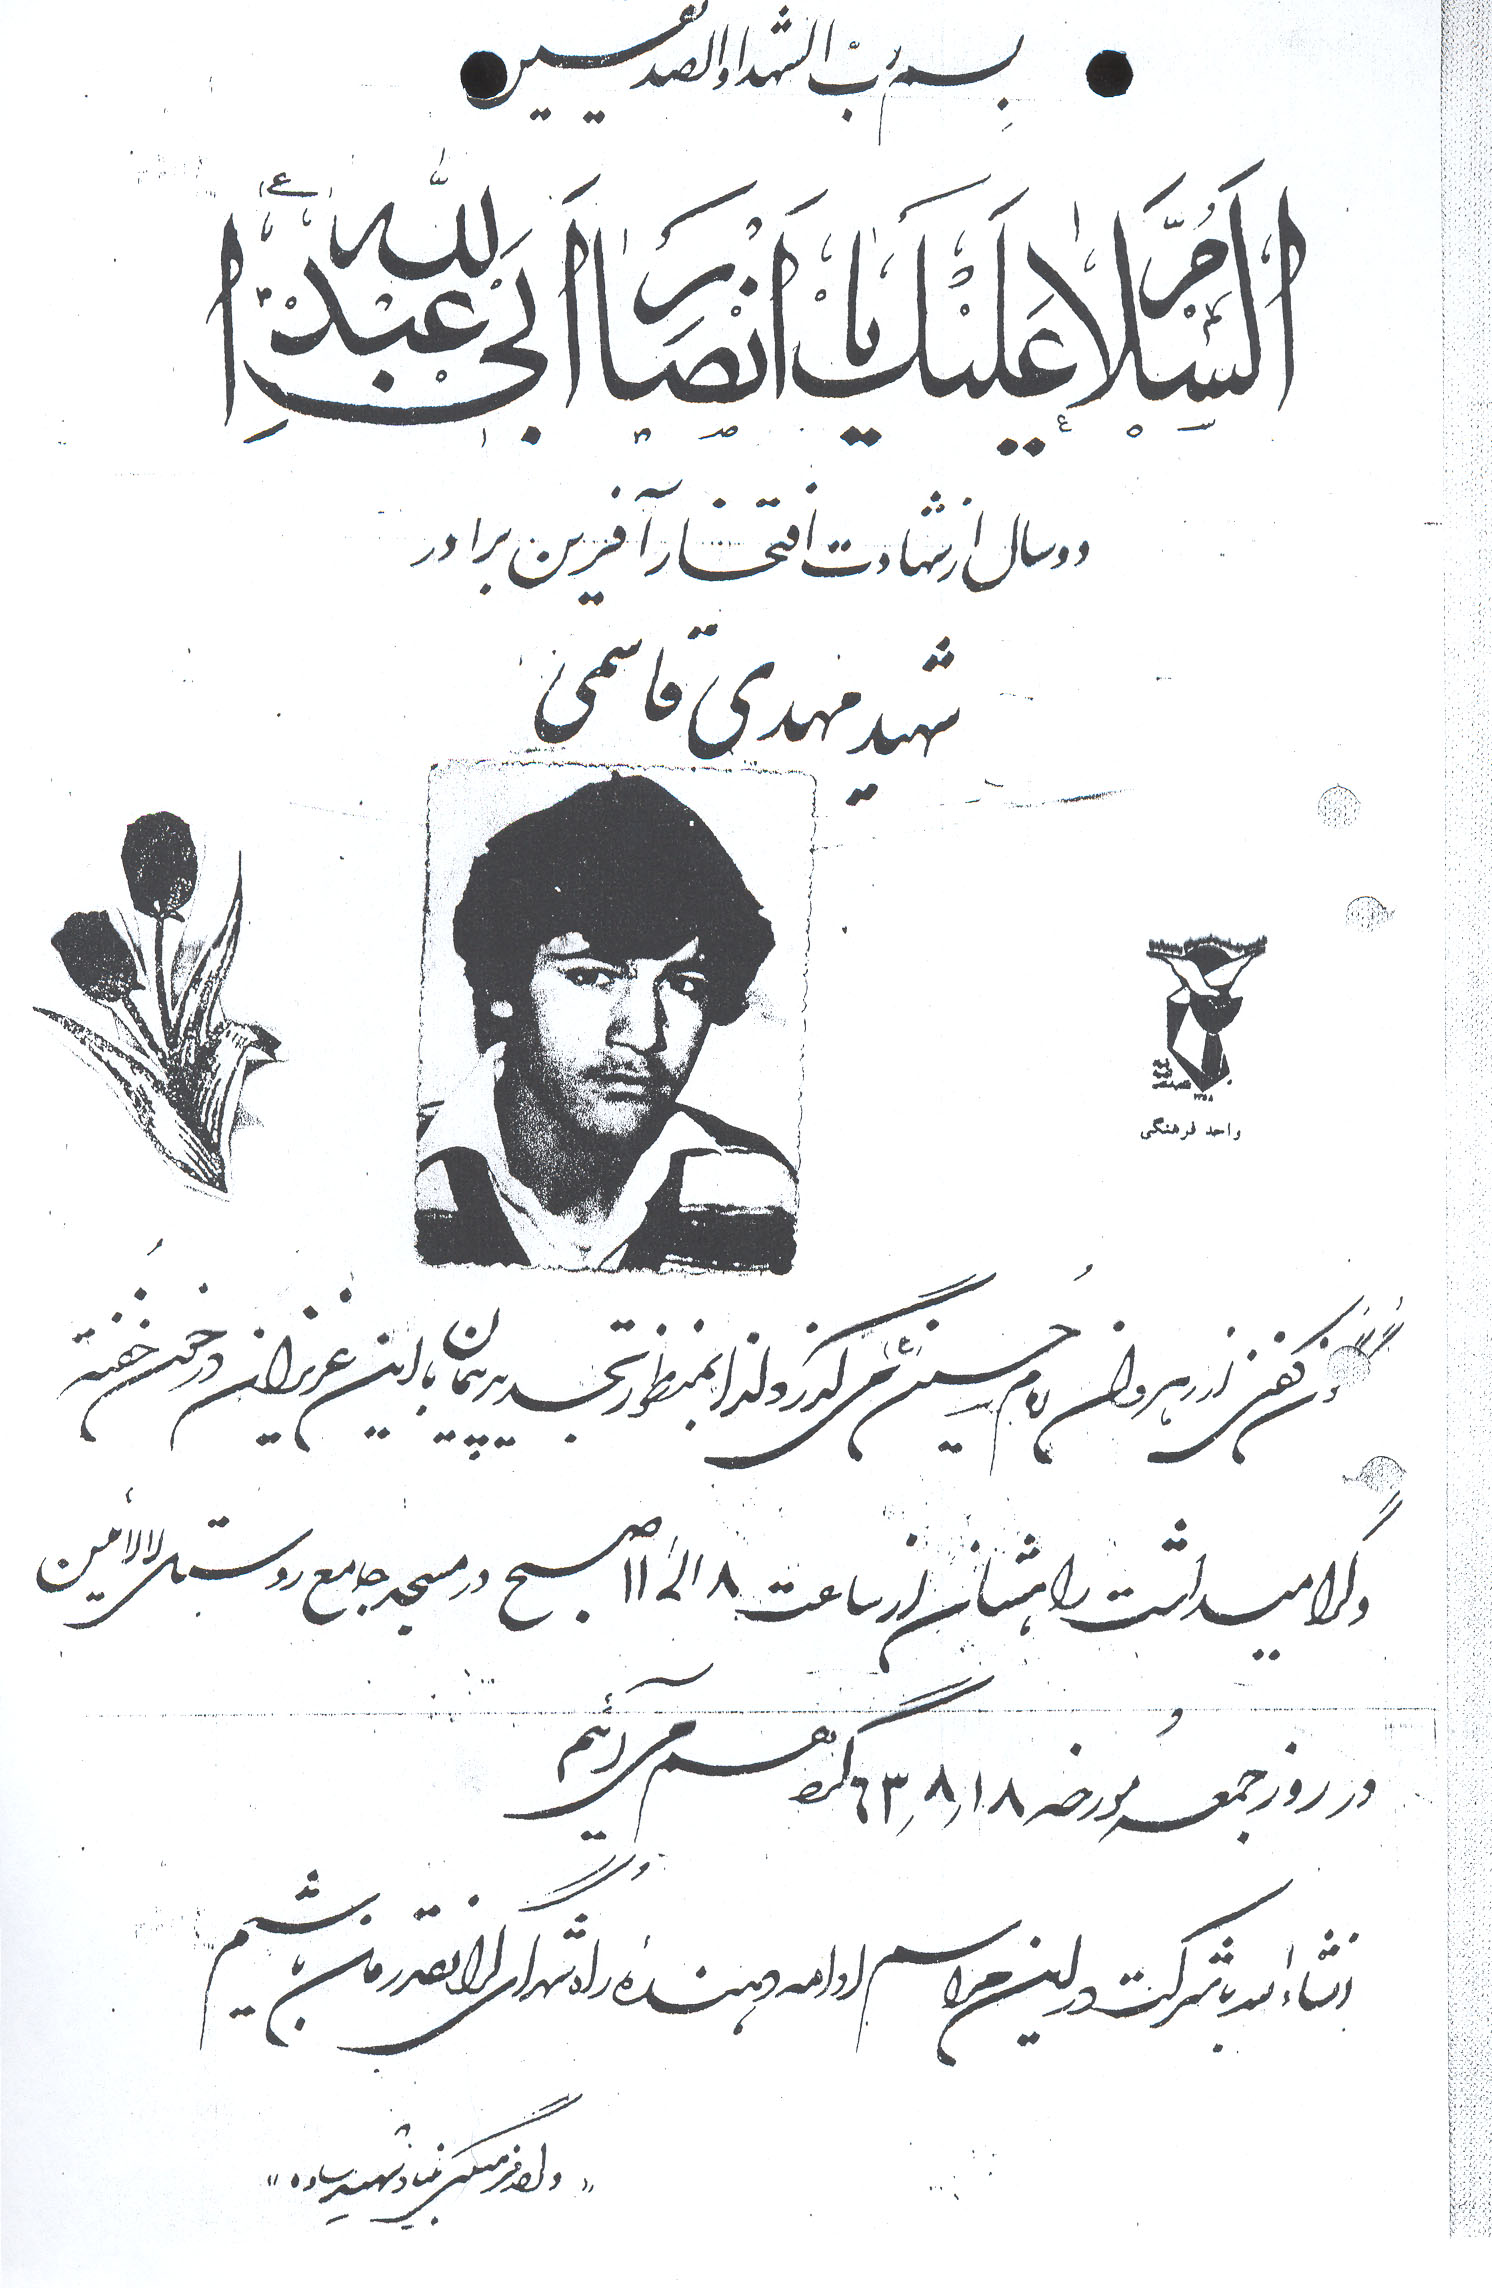 بسم رب الشهداء والصدیقین
اَلسَّلامُ عَلَیْکَ یا اَنْصارَ اَبی عَبْدِاللهِ (ع)
دو سال از شهادت افتخار آفرین برادر
شهید مهدی قاسمی
بنیاد
شهید
۱۳۵۸
واحد فرهنگی
گلگون کفنی از رهروان امام حسین (ع) می گذرد لذا بمنظور تجدید پیمان با این عزیزان در خون خفته
و گرامیداشت راهشان از ساعت ۸ الی ۱۱ صبح در مسجد جامع روستای لالائین
در روز جمعه مورخه ۶۳٫۸٫۱۸ گرد هم می آئیم
انشاءالله با شرکت در این مراسم ادامه دهنده راه شهدای گرانقدرمان باشیم
«واحد فرهنگی بنیاد شهید ساوه»